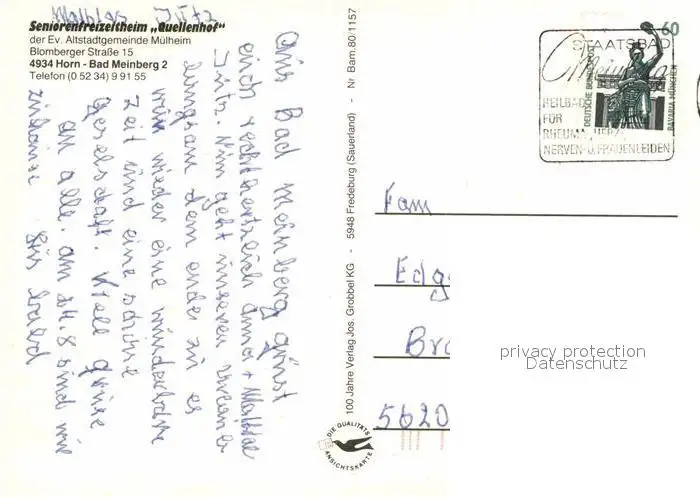 Seniorenfreizeitheim „Quellenhof"
der Ev. Altstadtgemeinde Mülheim
Blomberger Straße 15
4934 Horn - Bad Meinberg 2
Telefon (0 52 34) 9 91 55
Aus Bad Meinberg grüsst
euch recht herzlich
Jutz. Nun geht unserer
langsam dem ende zu es
war wieder eine wunderbare
Zeit und eine schöne
Gesellschaft. Viele grüse
an alle. am 24.8 sind wir
zuhause Bis bald
100 Jahre Verlag Jos. Grobbel KG - 5948 Fredeburg (Sauerland) - Nr Bam.80/1157
DIE QUALITÄTS
ANSICHTSKARTE
60
DEUTSCHE BUNDESPOST
BAVARIA MÜNCHEN
STAATSBAD
Meinberg
HEILBAD
FÜR
RHEUMA, HERZ
NERVEN- U. FRAUENLEIDEN
Fam
Edg
Bro
5620
privacy protection
Datenschutz